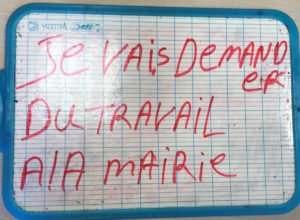 Je vais Demand
er
Du travail
A lA mairie